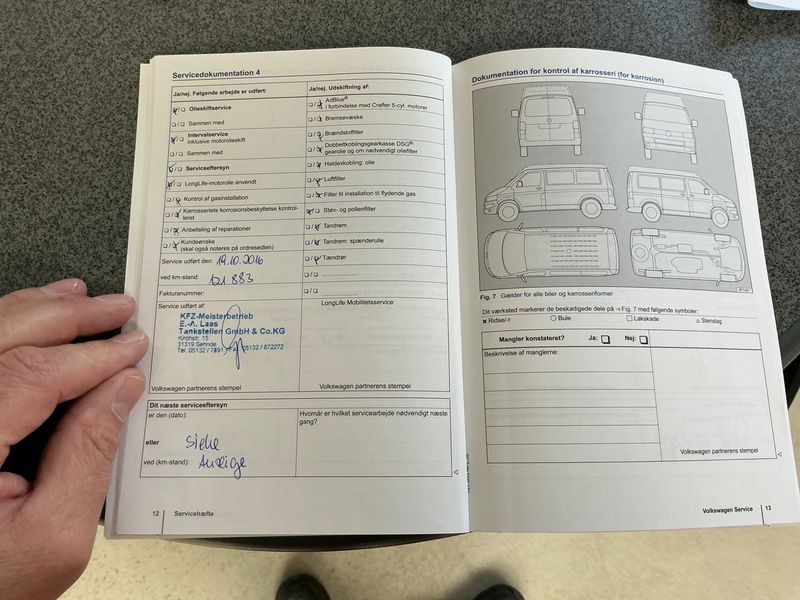 Servicedokumentation 4
Ja/nej. Følgende arbejde er udført:
Olieskiftservice
Sammen med
Intervalservice
Inklusive motorolieskift
Sammen med
Serviceeftersyn
LongLife-motorolie anvendt
Kontrol af gasinstallation
Karrosseriets korrosionsbeskyttelse kontrol-
leret
Anbefaling af reparationer
Kundeønske
(skal også noteres på ordresedlen)
Service udført den: 19.10.2016
ved km-stand: 121 883
Fakturanummer:
Ja/nej. Udskiftning af:
AdBlue®
i forbindelse med Crafter 5-cyl. motorer
Bremsevæske
Brændstoffilter
Dobbeltkoblingsgearkasse DSG®:
gearolie og om nødvendigt oliefilter
Haldexkobling: olie
Luftfilter
Filter til installation til flydende gas
Støv- og pollenfilter
Tandrem
Tandrem: spænderulle
Tændrør
Service udført af:
KFZ-Meisterbetrieb
E.-A. Laas
Tankstellen GmbH & Co.KG
Kirchstr. 15
31319 Sehnde
Tel. 05132 / 7891 Fax 05132 / 872272
Volkswagen partnerens stempel
LongLife Mobilitetsservice:
Volkswagen partnerens stempel
Dit næste serviceeftersyn
er den (dato):
eller siehe
ved (km-stand): Anzeige
Hvornår er hvilket servicearbejde nødvendigt næste
gang?
12 Servicehæfte
Dokumentation for kontrol af karrosseri (for korrosion)
Fig. 7 Gælder for alle biler og karrosseriformer
Dit værksted markerer de beskadigede dele på ⇒ Fig. 7 med følgende symboler:
× Ridse/-r ○ Bule □ Lakskade △ Stenslag
Mangler konstateret? Ja: Nej:
Beskrivelse af manglerne:
Volkswagen partnerens stempel
Volkswagen Service 13